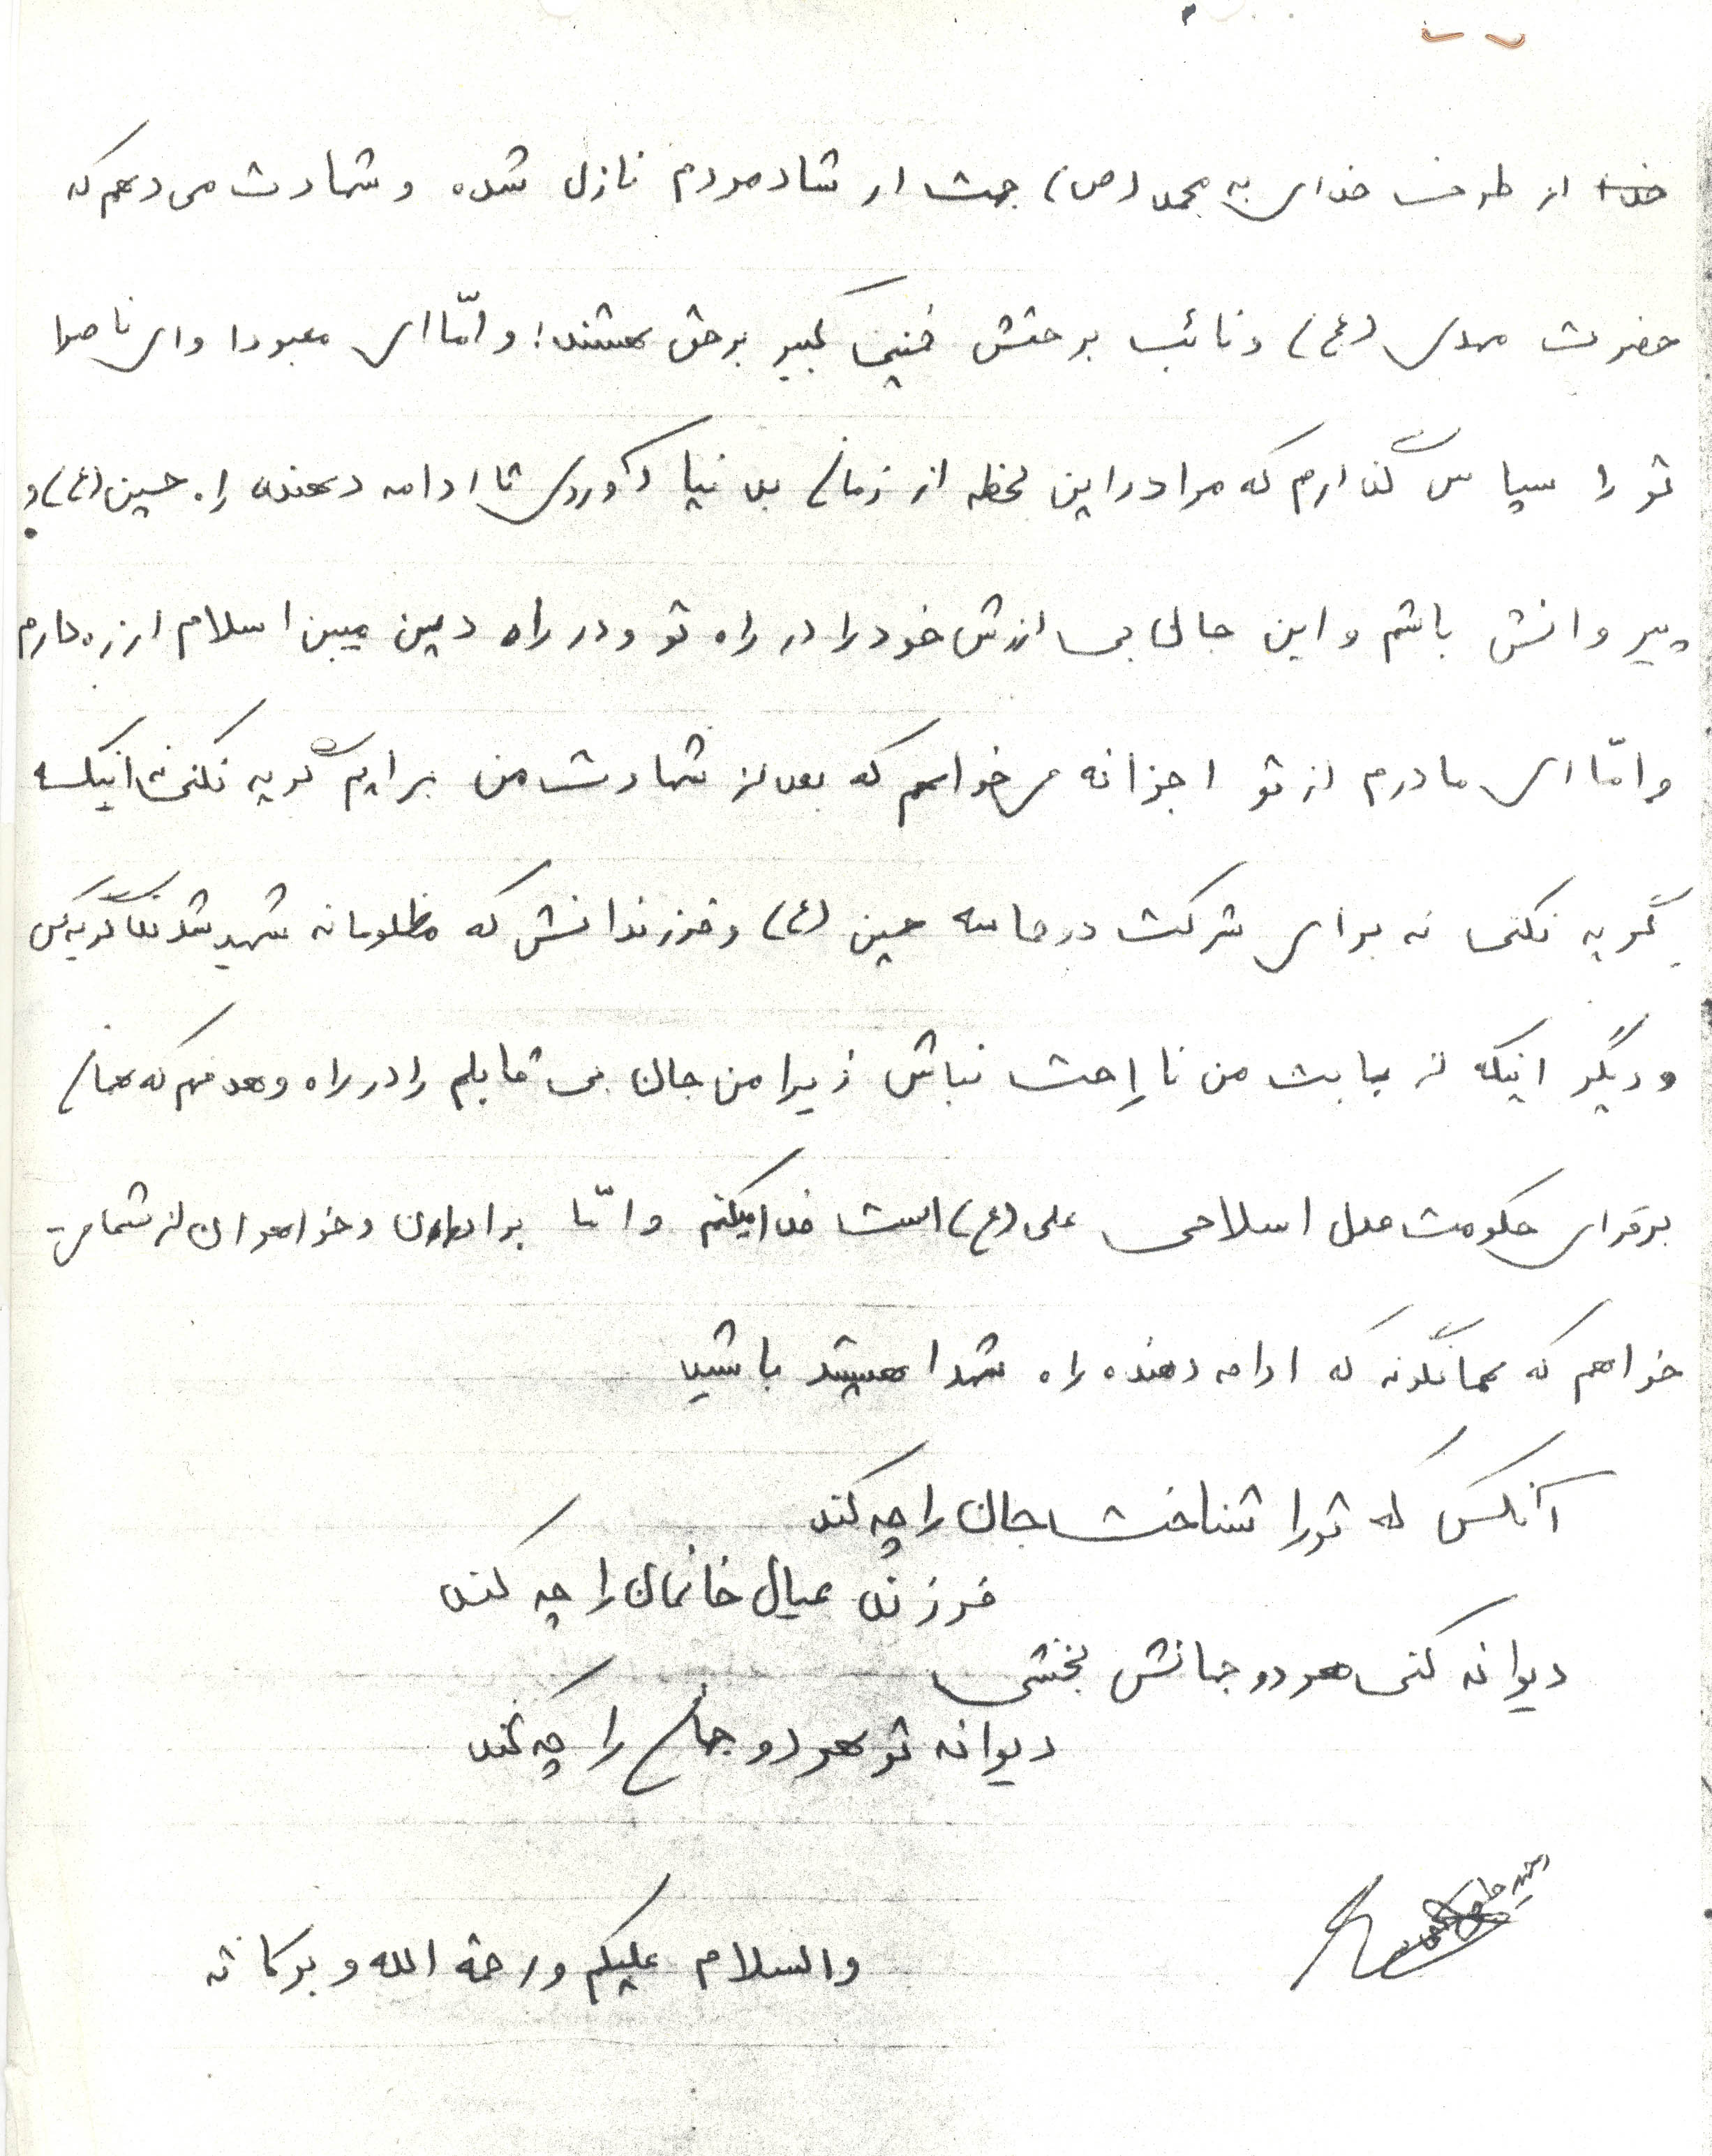 خدا از طرف خدای به محمد (ص) جهت ارشاد مردم نازل شده و شهادت می دهم که
حضرت مهدی (عج) و نائب بر حقش خمینی کبیر برحق هستند؛ و امّا ای معبودا و ای ناصرا
تو را سپاس گذارم که مرا در این لحظه از زمان بدنیا آوردی تا ادامه دهنده راه حسین (ع) و
پیروانش باشم و این جان بی ارزش خود را در راه تو و در راه دین مبین اسلام ارزه دارم
و امّا ای مادرم از تو اجزانه می خواهم که بعد از شهادت من برایم گریه نکنی اینکه
گریه نکنی نه برای شرکت در حماسه حسین (ع) و فرزندانش که مظلومانه شهید شدند گریه کن
و دیگر اینکه از بابت من ناراحت نباش زیرا من جان بی قابلم را در راه و هدفم که همان
برقرای حکومت عدل اسلامی علی (ع) است فدا میکنم و امّا برادران و خواهران از شما می
خواهم که همانگونه که ادامه دهنده راه شهدا هستید باشید
آنکس که تو را شناخت جان را چه کند
فرزند عیال خانمان را چه کند
دیوانه کنی هر دو جهانش بخشی
دیوانه تو هر دو جهان را چه کند
والسلام علیکم و رحمة الله و برکاته